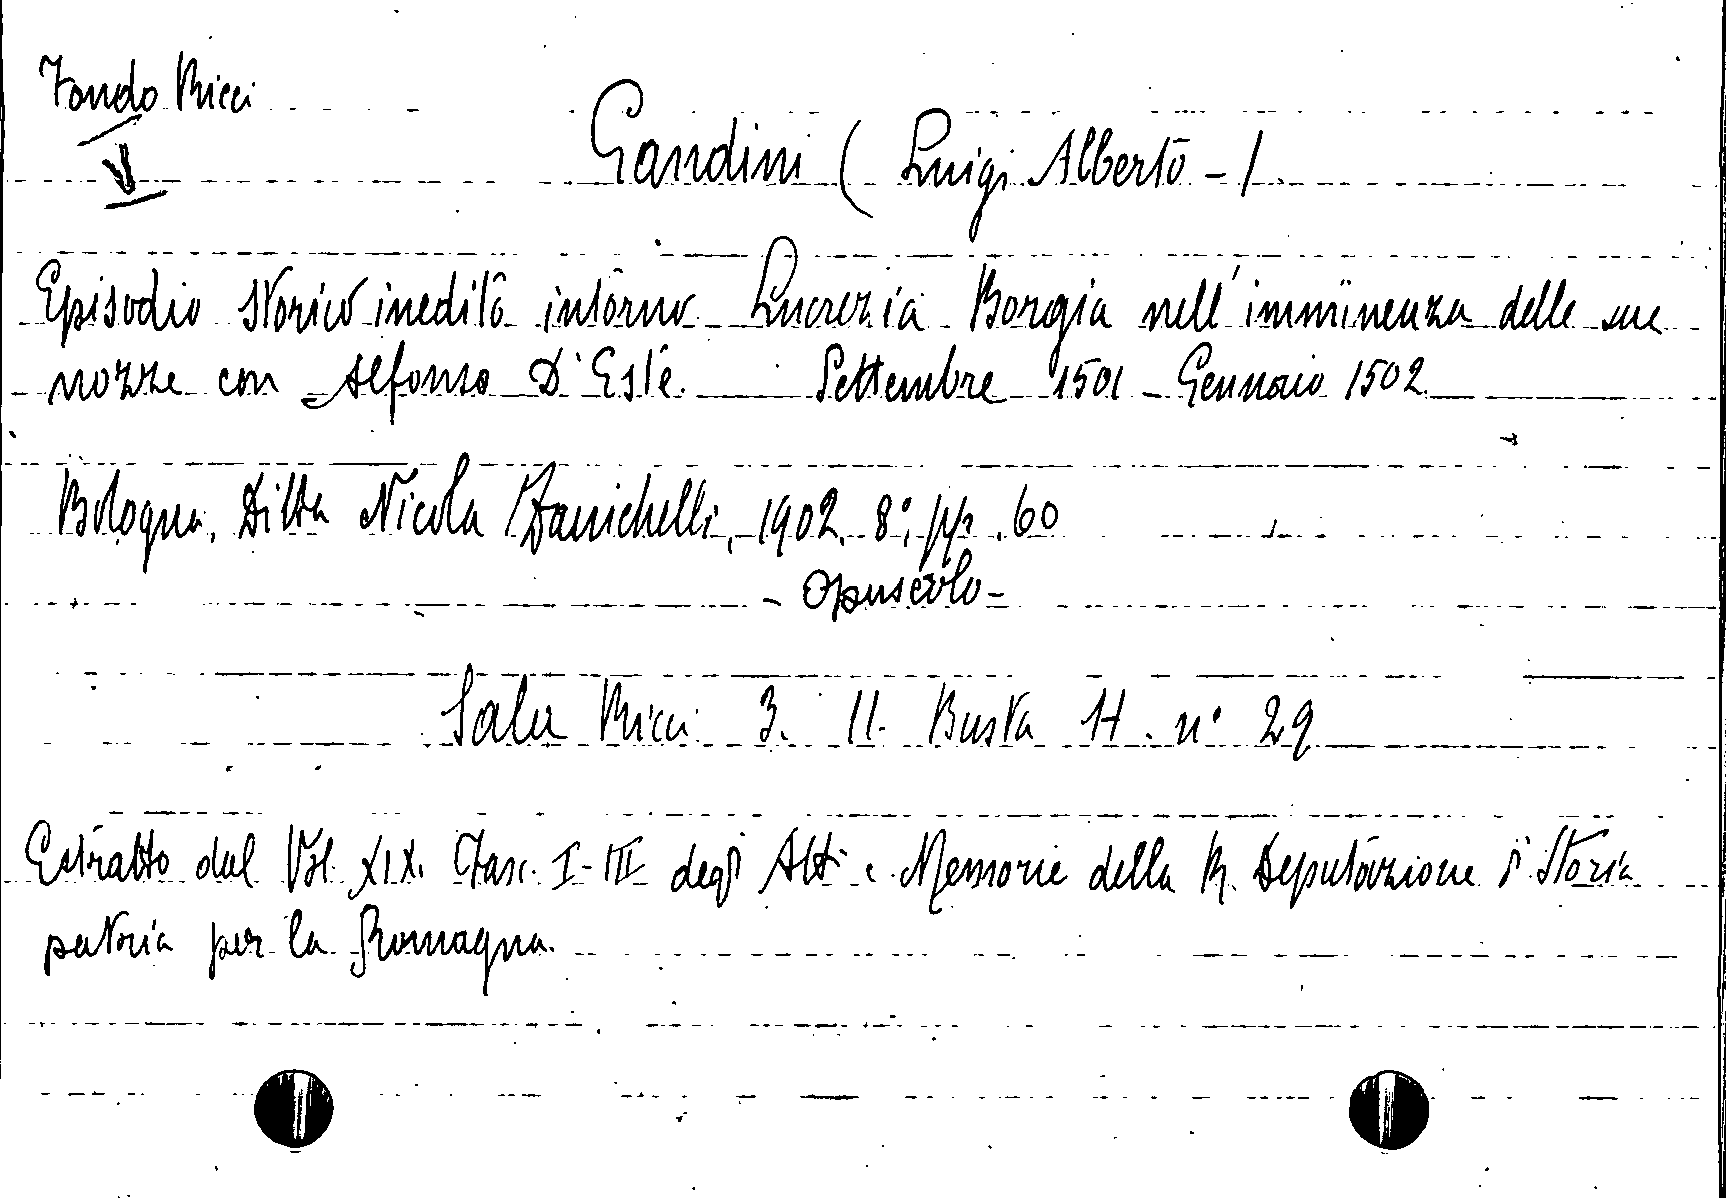 Fondo Ricci
V
Gandini (Luigi Alberto -)
Episodio storico inedito intorno Lucrezia Borgia nell'imminenza delle sue
nozze con Alfonso D'Este. Settembre 1501 - Gennaio 1502
Bologna, Ditta Nicola Zanichelli, 1902. 8°, pp. 60
- Opuscolo -
Sala Ricci 3. 11. Busta H. n° 29
Estratto dal Vol. XIX. Fasc. I-III degli Atti e Memorie della R. Deputazione di Storia
patria per la Romagna.